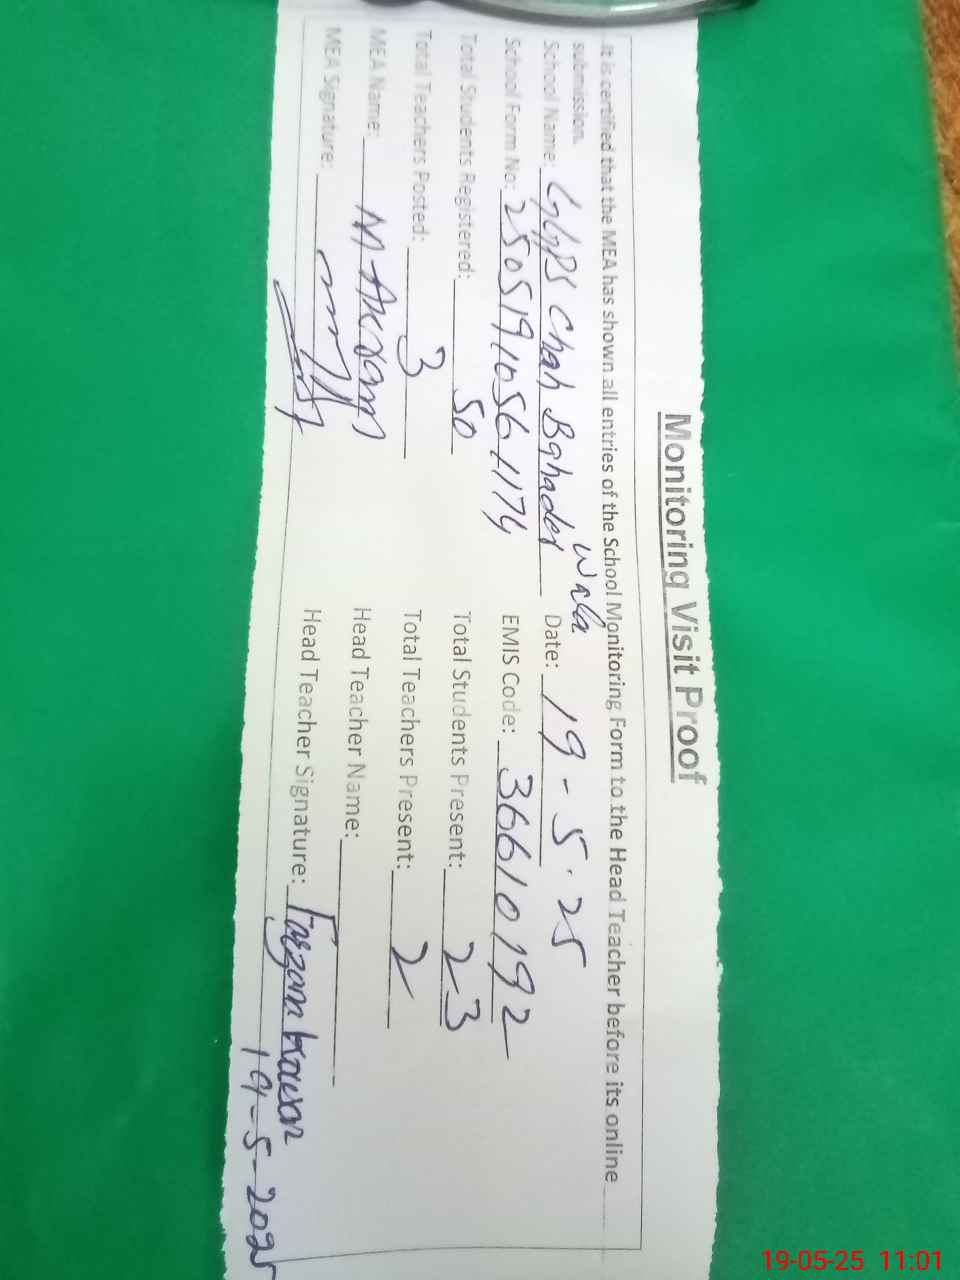 Monitoring Visit Proof
It is certified that the MEA has shown all entries of the School Monitoring Form to the Head Teacher before its online
submission.
School Name: GGPS Chah Bahader Wala Date: 19-5-25
School Form No: 2505191056 1174 EMIS Code: 36610192
Total Students Registered: 50 Total Students Present: 23
Total Teachers Posted: 3 Total Teachers Present: 2
MEA Name: M Akram Head Teacher Name:
MEA Signature: Head Teacher Signature: Farzana Kausar
19-5-2025
19-05-25 11:01